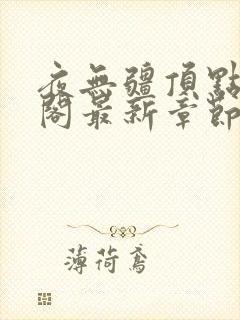 夜無疆頂點
閣最新章節
薄荷鳶